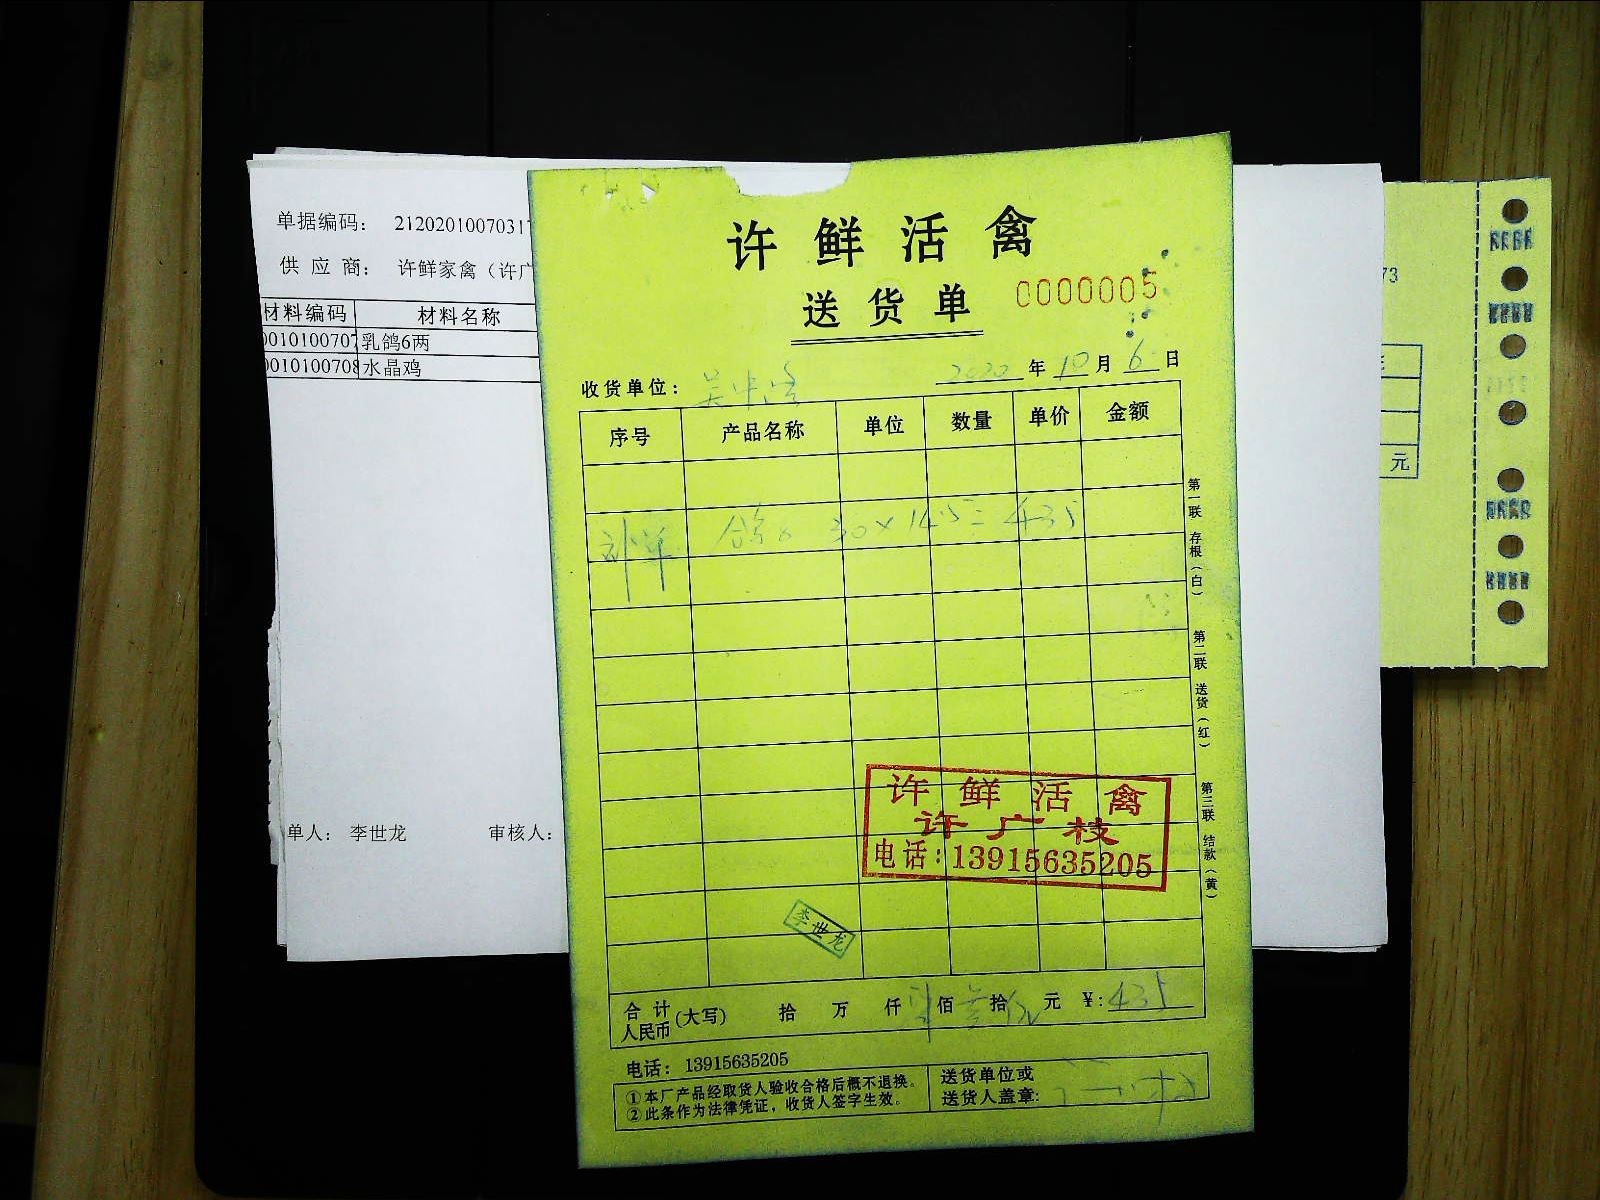 单据编码： 2120201007031
供 应 商： 许鲜家禽（许广
材料编码 材料名称
0010100707 乳鸽6两
0010100708 水晶鸡
单人： 李世龙 审核人：
许鲜活禽
送货单 0000005
2020 年 10 月 6 日
收货单位：
序号 产品名称 单位 数量 单价 金额
鸽 30×14.5=435
第一联 存根（白）
第二联 送货（红）
第三联 结款（黄）
许鲜活禽
许广枝
电话：13915635205
李世龙
合计人民币 (大写) 拾 万 仟 佰 拾 元 ¥：435
电话：13915635205
①本厂产品经取货人验收合格后概不退换。
②此条作为法律凭证，收货人签字生效。
送货单位或
送货人盖章：
73
元